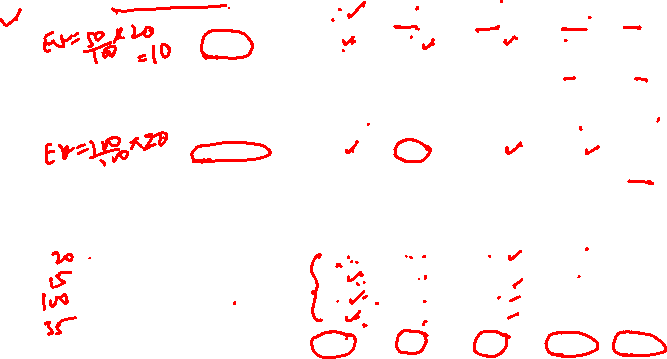 Ev=50/100×20
=10
Ev=100/100×20
20
15
100
35